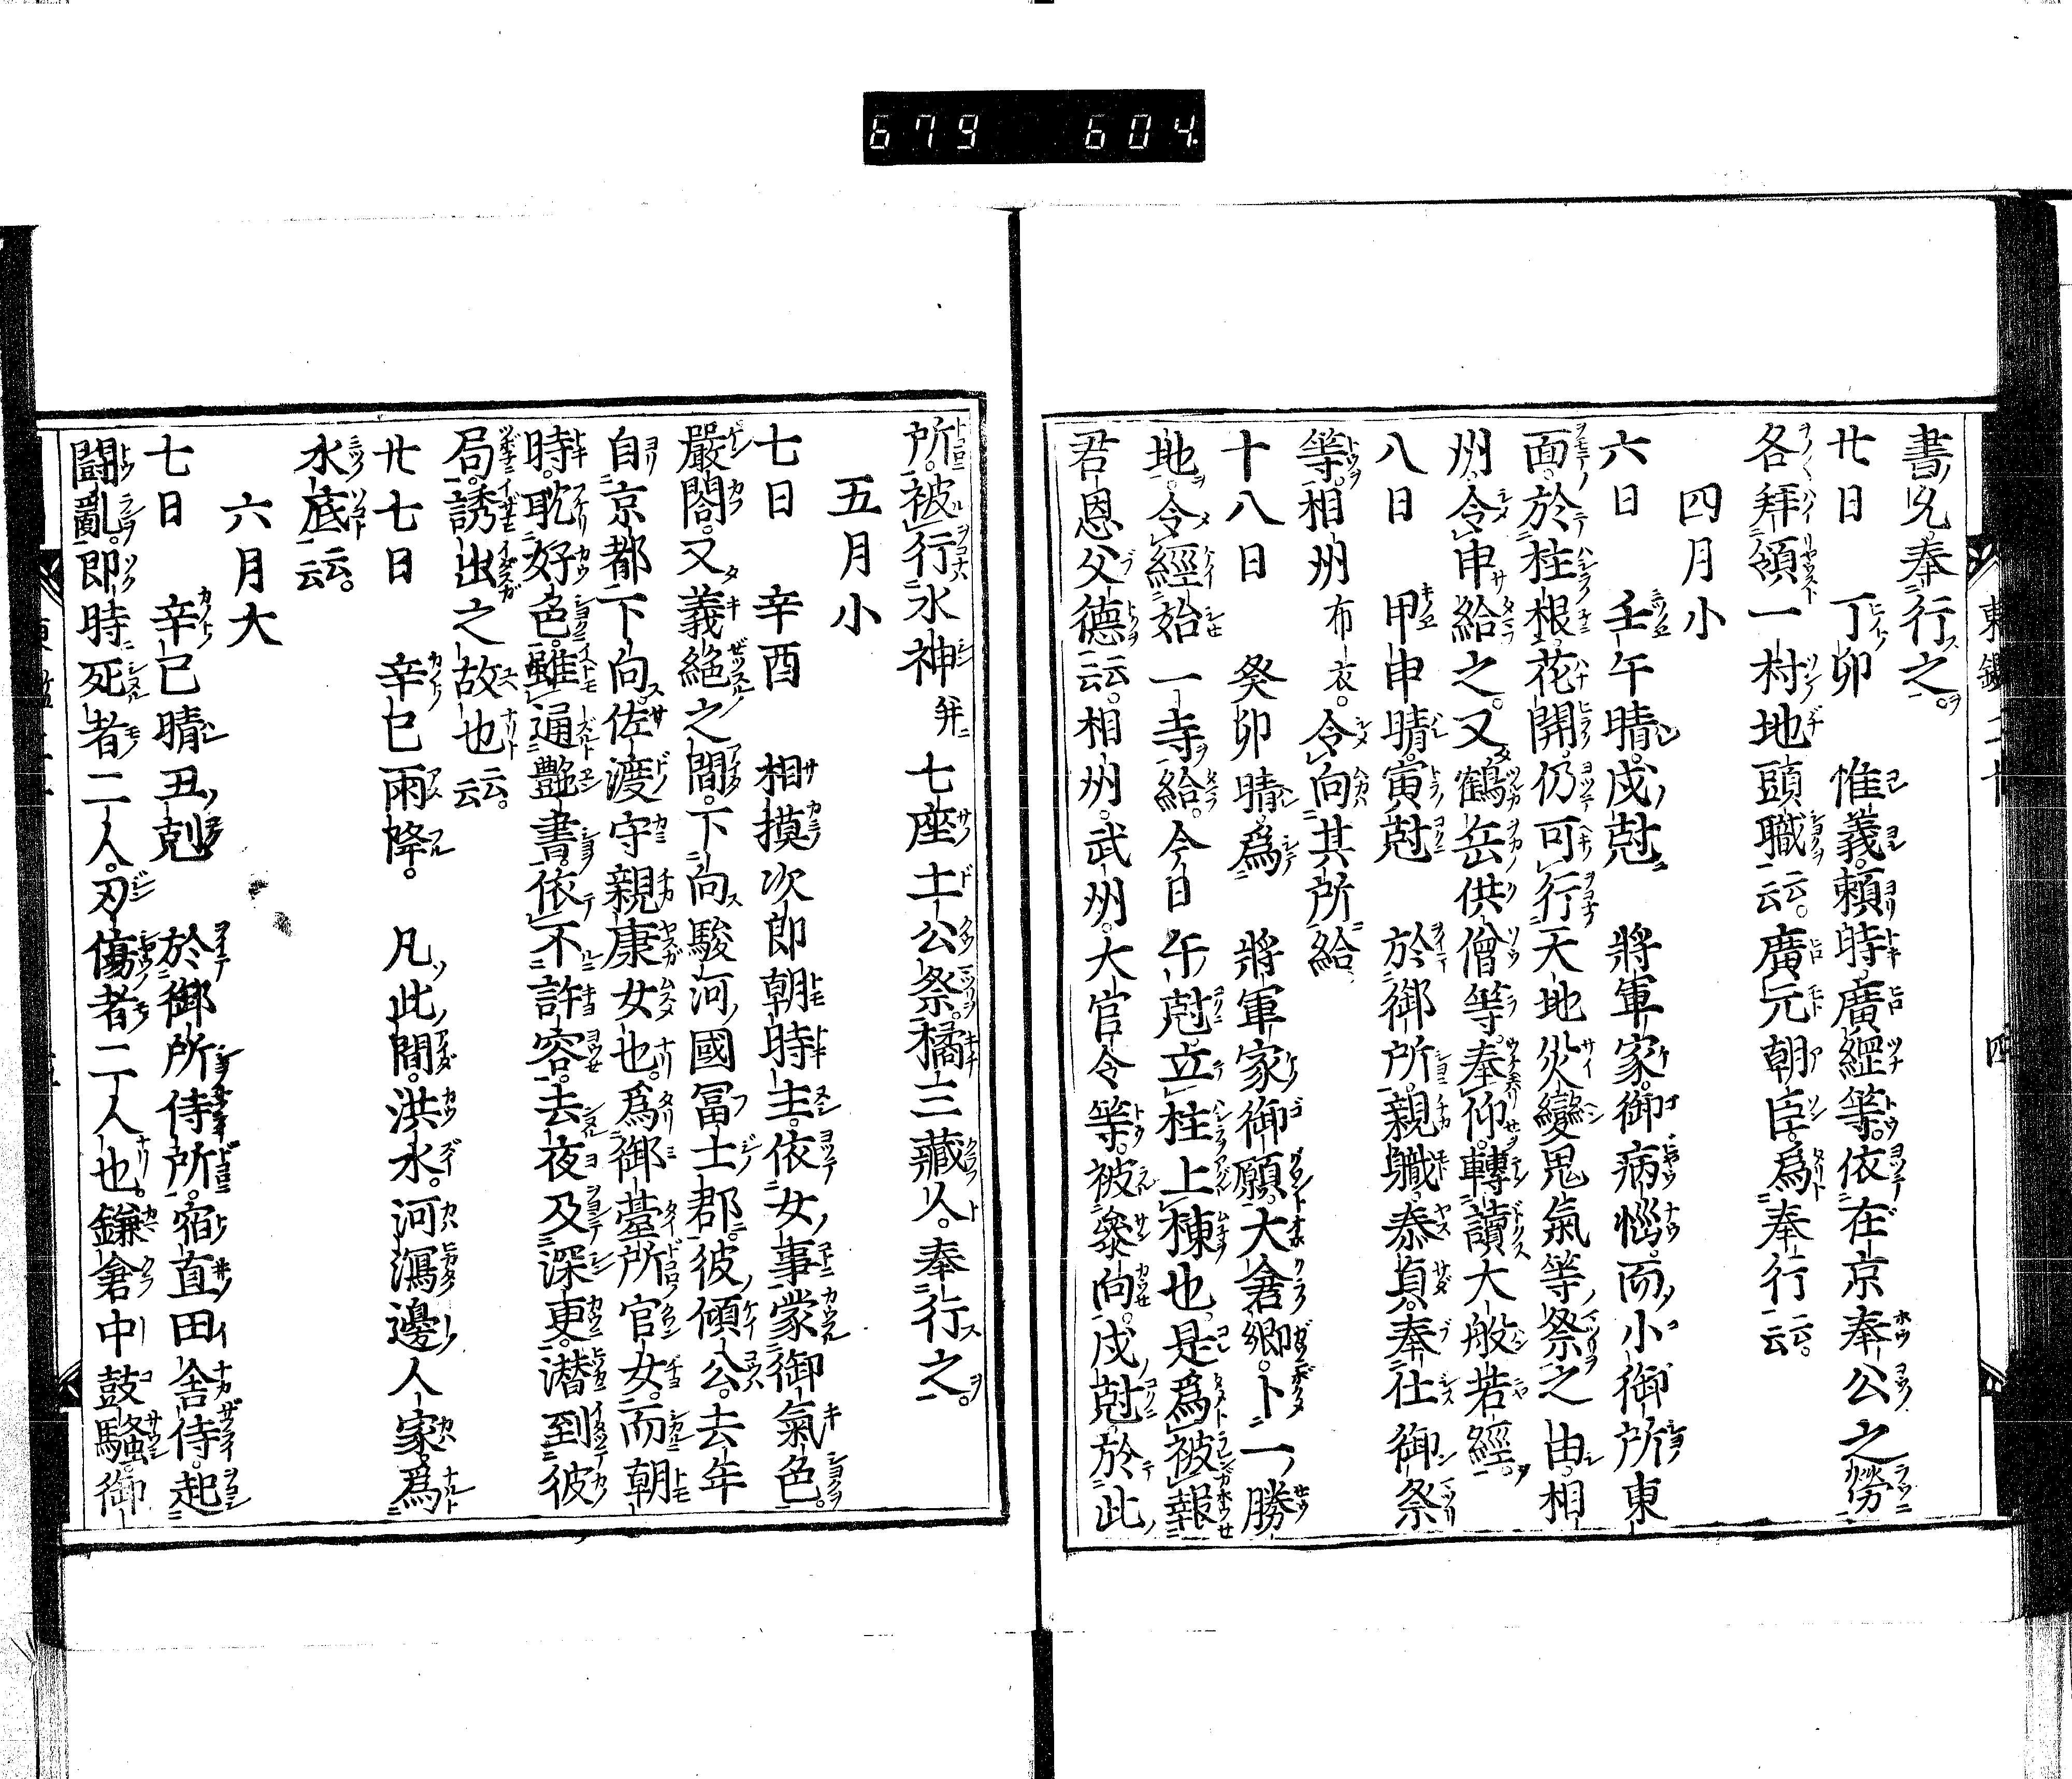 679 604
書允奉行之。
廿日 丁卯 惟義。頼時。廣綱等。依在京奉公之勞
各拜領一村地頭職云云。廣元朝臣。爲奉行云云。
四月小
六日 壬午晴。戌尅 將軍家。御病惱。而小御所東
面。於柱根花開。仍可行天地災變鬼氣等祭之由。相
州。令申給之。又鶴岳供僧等。奉仰。轉讀大般若經。
八日 甲申晴。寅尅 於御所。親職。泰貞。奉仕御祭
等。相州布衣。令向其所給
十八日 癸卯晴。爲 將軍家御願。大倉郷。卜一勝
地。令經始一寺給。今日午尅。立柱上棟也。是爲被報
君恩父德云云。相州。武州。大官令等。被參向。戌尅於此
所。被行水神幷七座土公祭。橘三藏人。奉行之。
五月小
七日 辛酉 相摸次郎朝時主。依女事蒙御氣色。
嚴閤。又義絶之間。下向駿河國冨士郡。彼傾公。去年
自京都下向。佐渡守親康女也。爲御臺所官女。而朝
時。耽好色。雖通艶書。依不許容。去夜及深更。潜到彼
局。誘出之故也云云。
廿七日 辛巳雨降。 凡此間。洪水。河瀉邊人家。爲
水底云云。
六月大
七日 辛巳晴丑剋 於御所侍所。宿直田舎侍。起
鬪亂。即時死者二人。刃傷者二人也。鎌倉中鼓騷。御